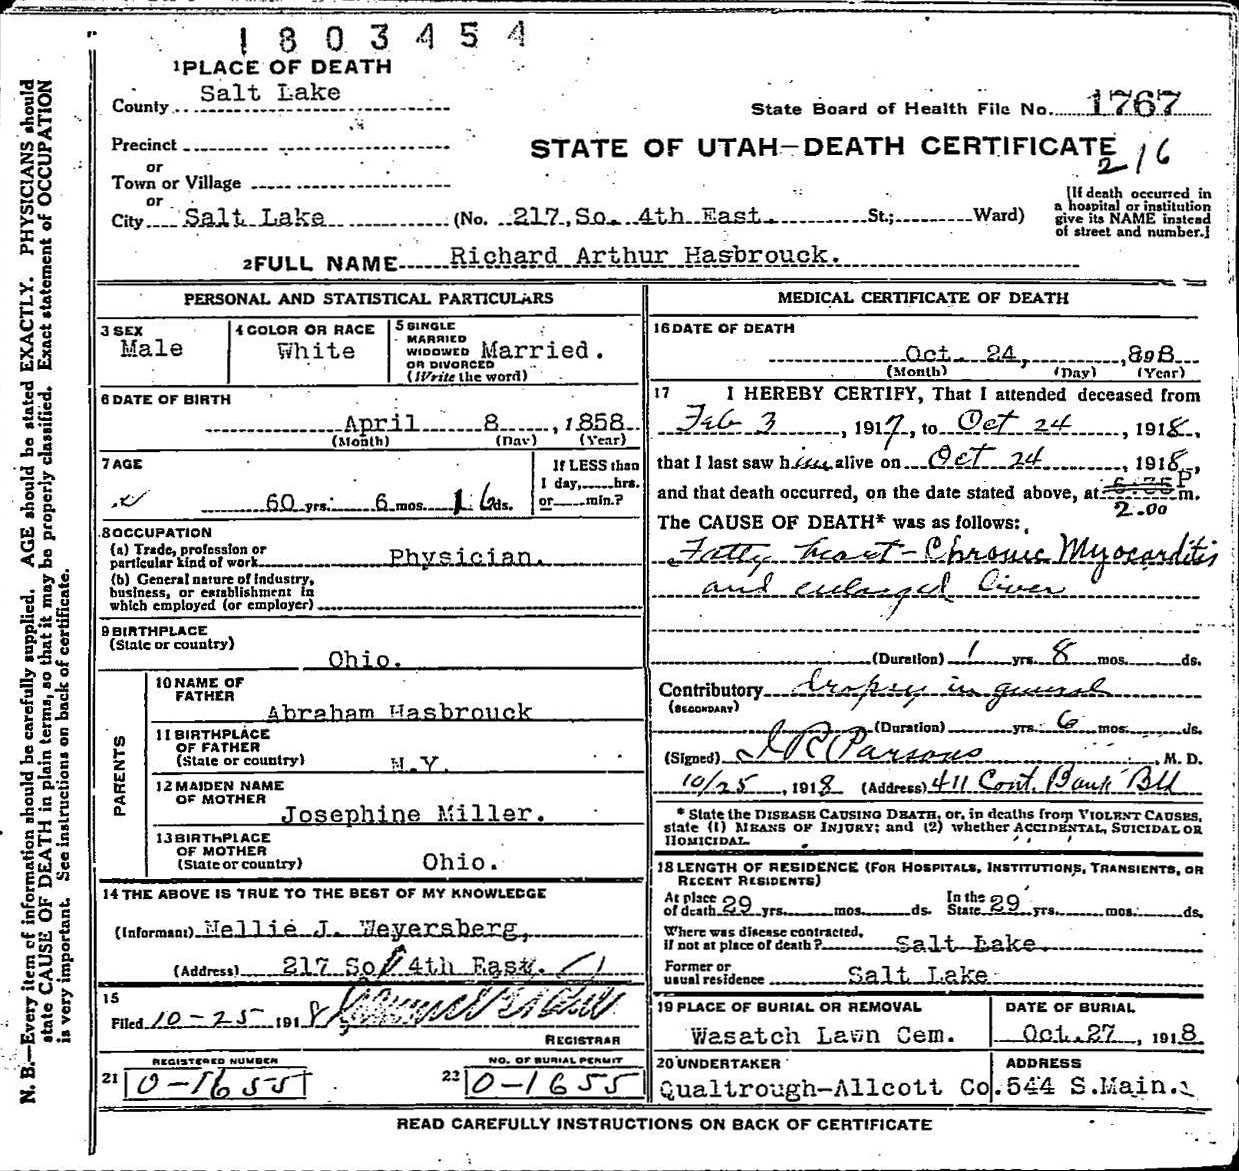 1803454
1 PLACE OF DEATH
County Salt Lake
State Board of Health File No. 1767
Precinct
STATE OF UTAH—DEATH CERTIFICATE
216
or
Town or Village
or
City Salt Lake (No. 217, So. 4th East. St.; Ward)
[If death occurred in
a hospital or institution
give its NAME instead
of street and number.]
2 FULL NAME Richard Arthur Hasbrouck.
PERSONAL AND STATISTICAL PARTICULARS
3 SEX
Male
4 COLOR OR RACE
White
5 SINGLE
MARRIED
WIDOWED
OR DIVORCED
(Write the word)
Married.
6 DATE OF BIRTH
April 8, 1858
(Month) (Day) (Year)
7 AGE
60 yrs. 6 mos. 16 ds.
If LESS than
1 day, hrs.
or min.?
8 OCCUPATION
(a) Trade, profession or
particular kind of work Physician.
(b) General nature of Industry,
business, or establishment in
which employed (or employer)
9 BIRTHPLACE
(State or country)
Ohio.
PARENTS
10 NAME OF
FATHER
Abraham Hasbrouck
11 BIRTHPLACE
OF FATHER
(State or country)
N.Y.
12 MAIDEN NAME
OF MOTHER
Josephine Miller.
13 BIRTHPLACE
OF MOTHER
(State or country)
Ohio.
14 THE ABOVE IS TRUE TO THE BEST OF MY KNOWLEDGE
(Informant) Nellie J. Weyersberg,
(Address) 217 So 4th East.
15
Filed 10-25 1918
REGISTRAR
REGISTERED NUMBER
21 0-1655
NO. OF BURIAL PERMIT
22 0-1655
MEDICAL CERTIFICATE OF DEATH
16 DATE OF DEATH
Oct. 24,
(Month) (Day) (Year)
17 I HEREBY CERTIFY, That I attended deceased from
Feb 3, 1917, to Oct 24, 1918,
that I last saw him alive on Oct 24, 1918,
and that death occurred, on the date stated above, at P m.
2.00
The CAUSE OF DEATH* was as follows:
Fatty heart - Chronic Myocarditis
and enlarged liver
(Duration) 1 yrs. 8 mos. ds.
Contributory dropsy in general
(SECONDARY)
(Duration) yrs. 6 mos. ds.
(Signed) Parsons, M. D.
10/25, 1918 (Address) 411 Cont. Bank Bld
* State the DISEASE CAUSING DEATH, or, in deaths from VIOLENT CAUSES,
state (1) MEANS OF INJURY; and (2) whether ACCIDENTAL, SUICIDAL OR
HOMICIDAL.
18 LENGTH OF RESIDENCE (FOR HOSPITALS, INSTITUTIONS, TRANSIENTS, OR
RECENT RESIDENTS)
At place
of death 29 yrs. mos. ds.
In the
State 29 yrs. mos. ds.
Where was disease contracted,
if not at place of death? Salt Lake.
Former or
usual residence Salt Lake
19 PLACE OF BURIAL OR REMOVAL
Wasatch Lawn Cem.
DATE OF BURIAL
Oct. 27, 1918
20 UNDERTAKER
Qualtrough-Allcott Co.
ADDRESS
544 S.Main.
READ CAREFULLY INSTRUCTIONS ON BACK OF CERTIFICATE
N. B.—Every item of information should be carefully supplied. AGE should be stated EXACTLY. PHYSICIANS should
state CAUSE OF DEATH in plain terms, so that it may be properly classified. Exact statement of OCCUPATION
is very important. See instructions on back of certificate.